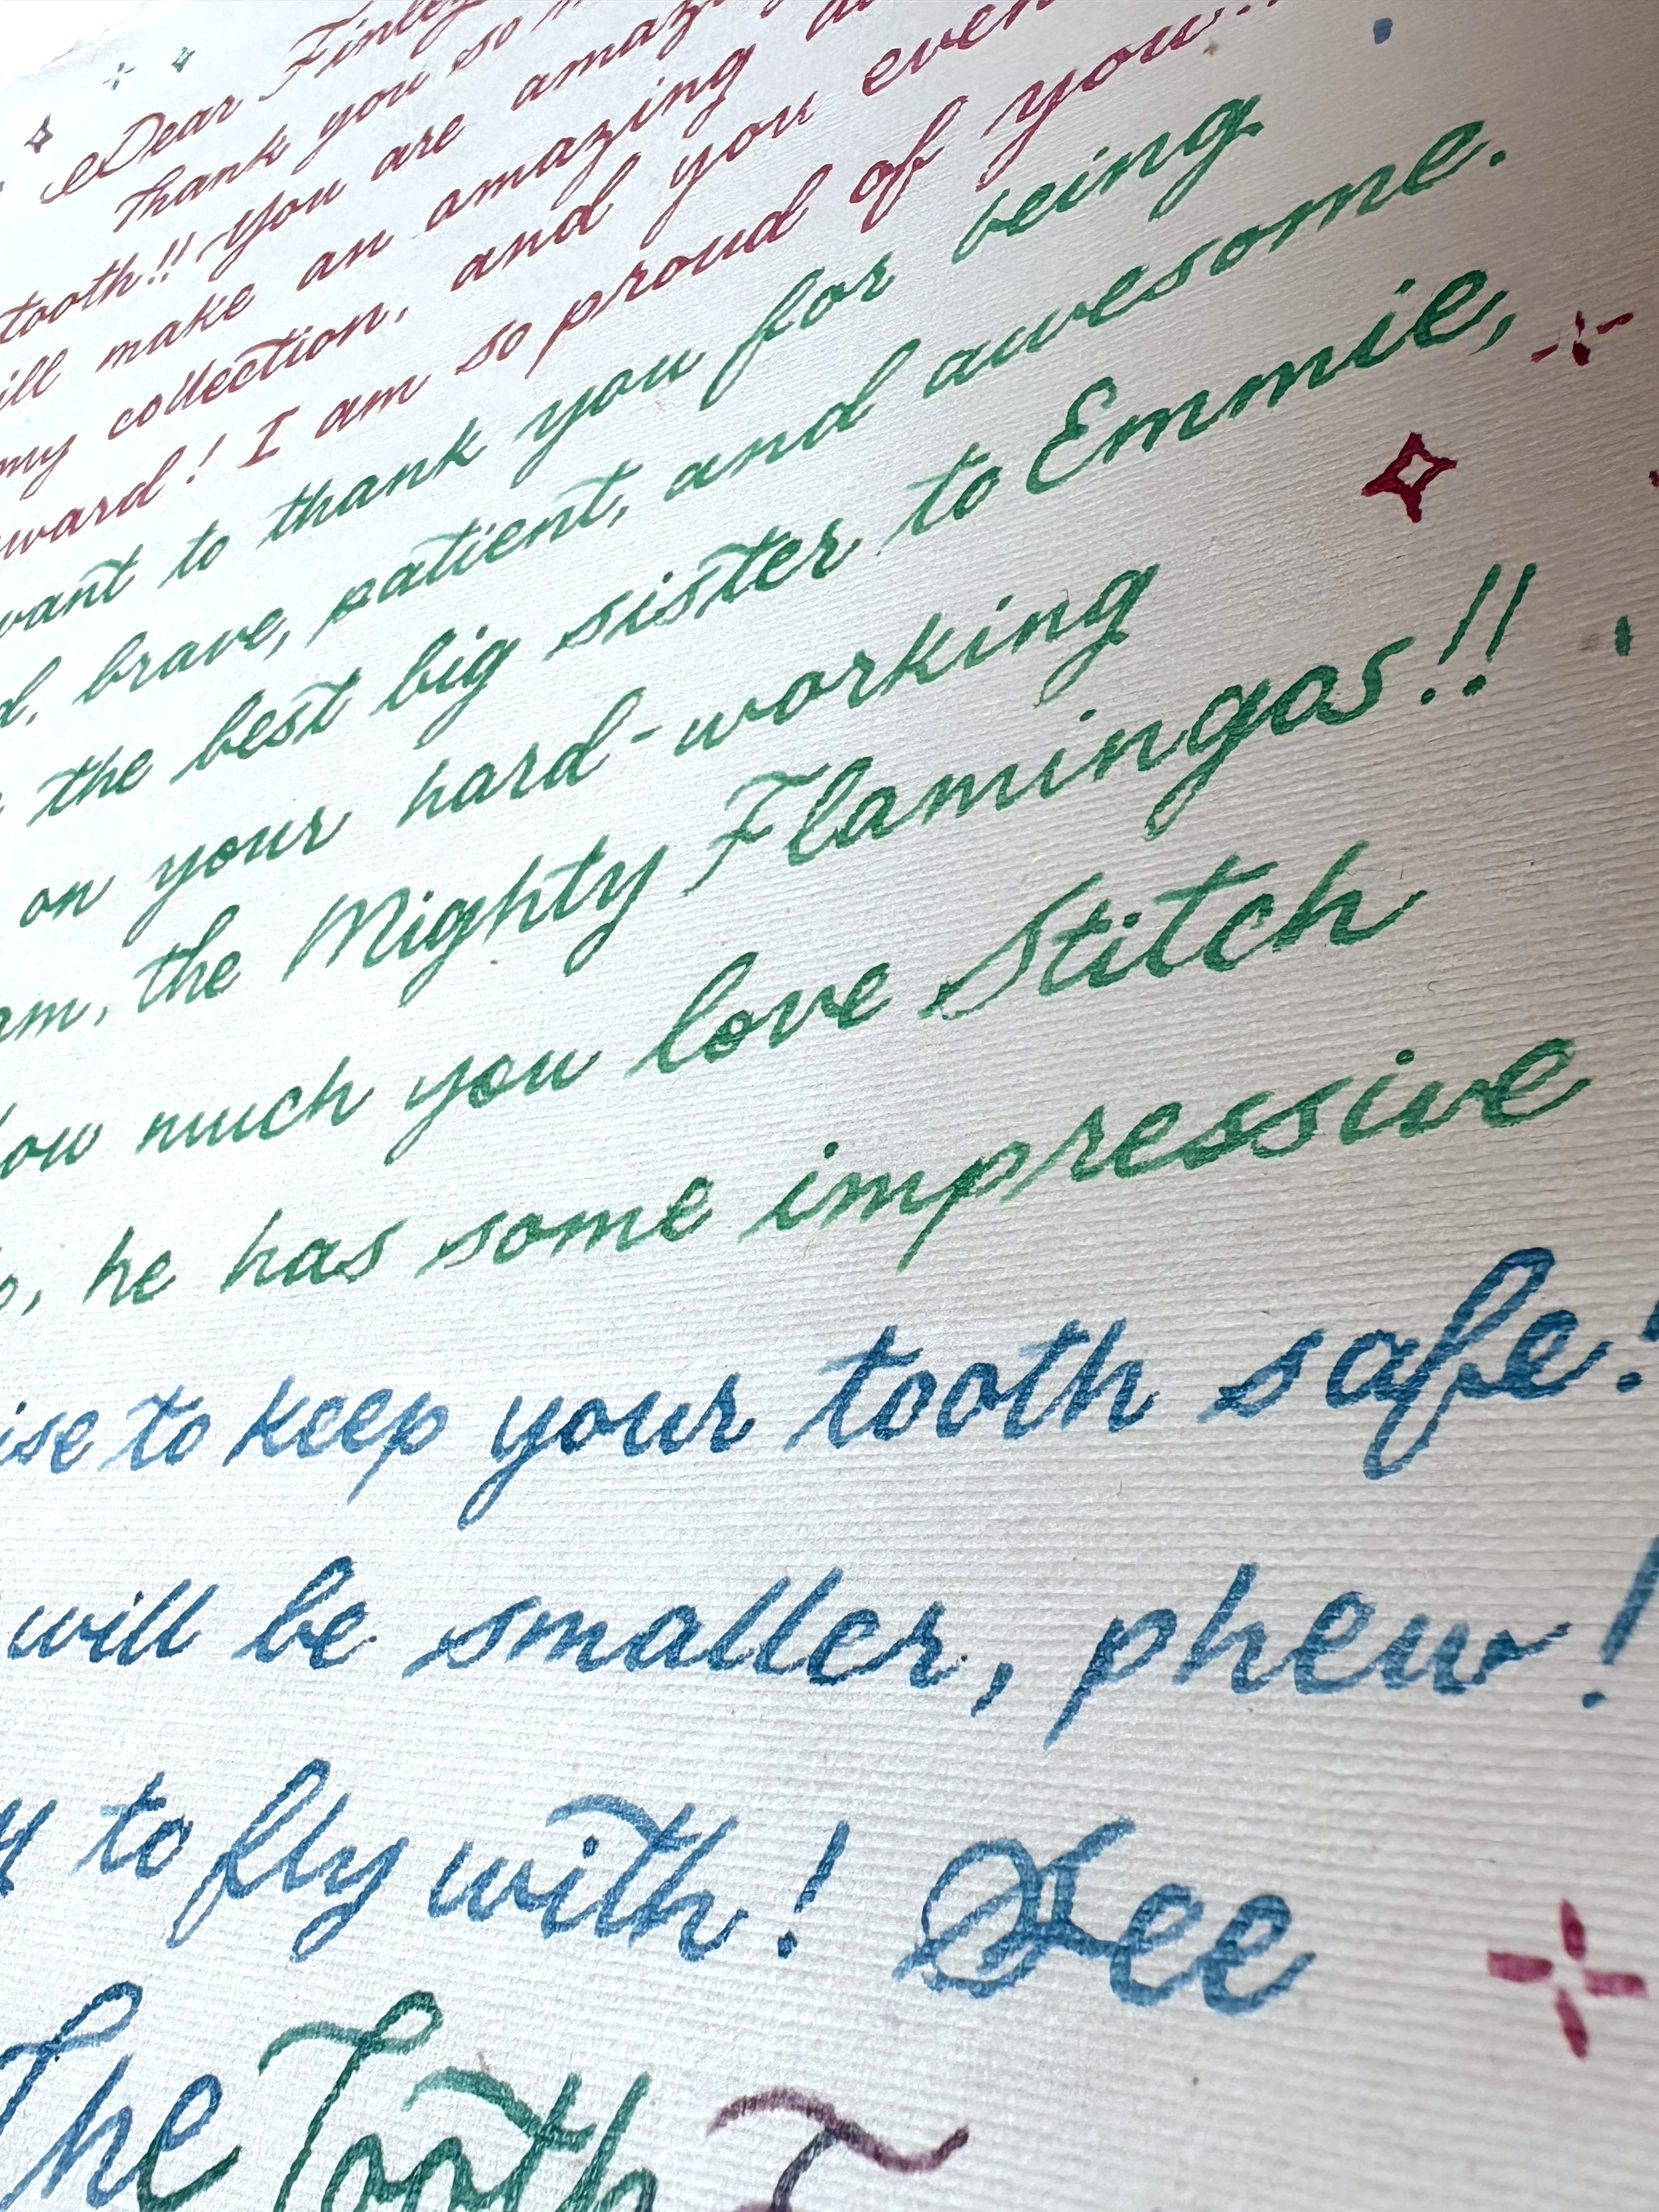 Dear Finley
Thank you so
tooth!! You are amazing
make an amazing
my collection, and you even
! I am so proud of you
want to thank you for being
brave, patient, and awesome.
the best big sister to Emmie,
on your hard-working
the Mighty Flamingos!!
much you love Stitch
he has some impressive
to keep your tooth safe!
will be smaller, phew!
to fly with! See
The Tooth